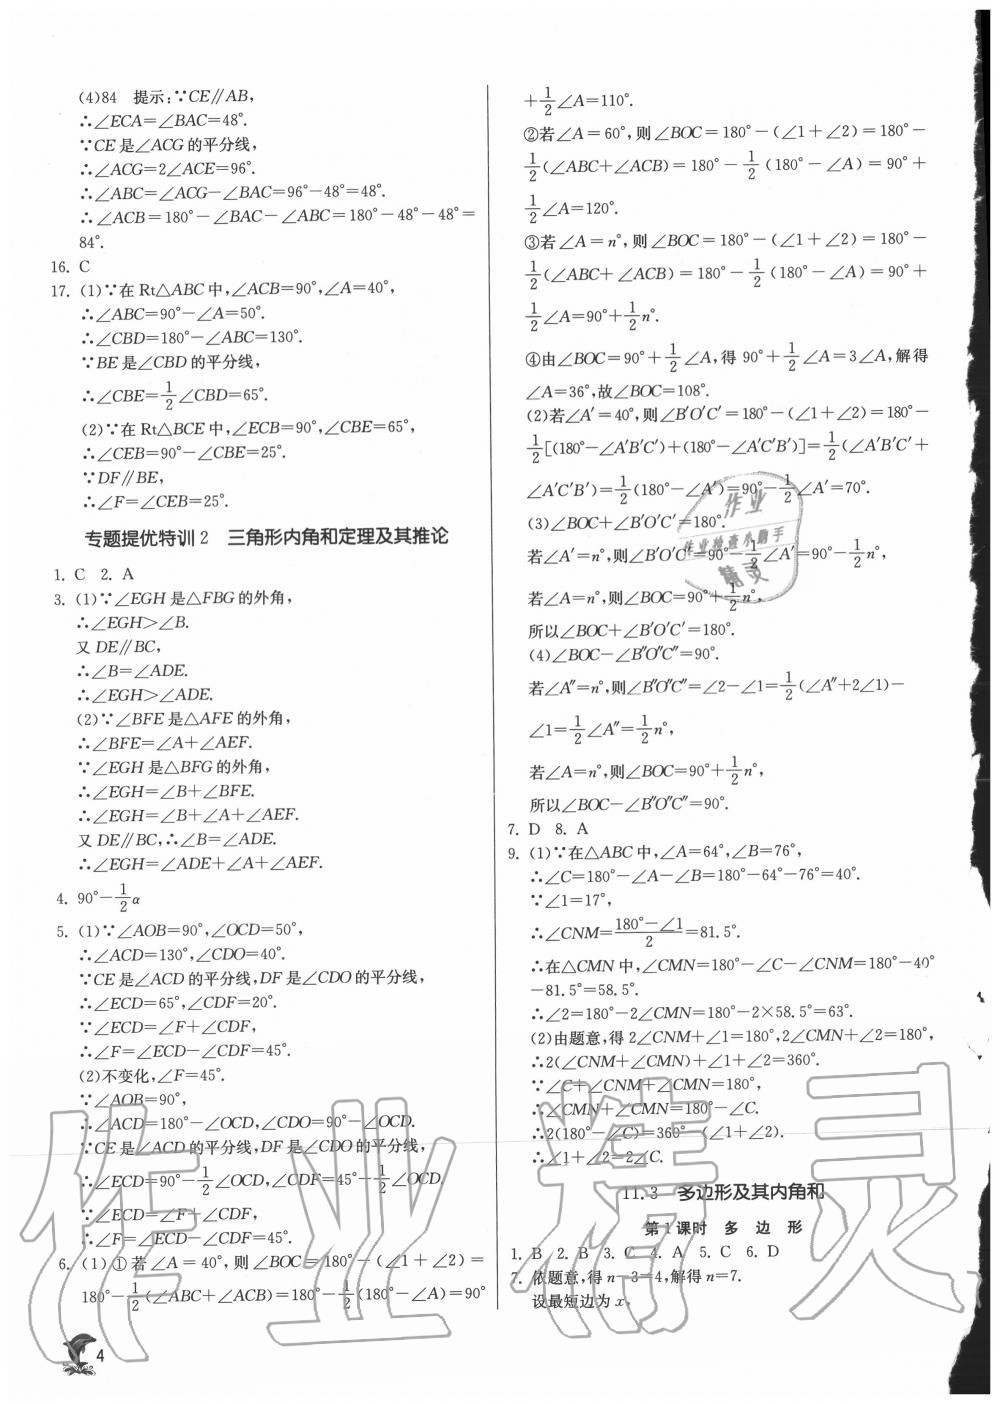 (4)84　提示:∵CE∥AB,
∴∠ECA=∠BAC=48°.
∵CE是∠ACG的平分线,
∴∠ACG=2∠ACE=96°.
∴∠ABC=∠ACG-∠BAC=96°-48°=48°.
∴∠ACB=180°-∠BAC-∠ABC=180°-48°-48°=
84°.
16. C
17. (1)∵在Rt△ABC中,∠ACB=90°,∠A=40°,
∴∠ABC=90°-∠A=50°.
∴∠CBD=180°-∠ABC=130°.
∵BE是∠CBD的平分线,
∴∠CBE=1/2∠CBD=65°.
(2)∵在Rt△BCE中,∠ECB=90°,∠CBE=65°,
∴∠CEB=90°-∠CBE=25°.
∵DF∥BE,
∴∠F=∠CEB=25°.
专题提优特训2　三角形内角和定理及其推论
1. C　2. A
3. (1)∵∠EGH是△FBG的外角,
∴∠EGH>∠B.
又DE∥BC,
∴∠B=∠ADE.
∴∠EGH>∠ADE.
(2)∵∠BFE是△AFE的外角,
∴∠BFE=∠A+∠AEF.
∵∠EGH是△BFG的外角,
∴∠EGH=∠B+∠BFE.
∴∠EGH=∠B+∠A+∠AEF.
又DE∥BC,∴∠B=∠ADE.
∴∠EGH=∠ADE+∠A+∠AEF.
4. 90°-1/2α
5. (1)∵∠AOB=90°,∠OCD=50°,
∴∠ACD=130°,∠CDO=40°.
∵CE是∠ACD的平分线,DF是∠CDO的平分线,
∴∠ECD=65°,∠CDF=20°.
∵∠ECD=∠F+∠CDF,
∴∠F=∠ECD-∠CDF=45°.
(2)不变化,∠F=45°.
∵∠AOB=90°,
∴∠ACD=180°-∠OCD,∠CDO=90°-∠OCD.
∵CE是∠ACD的平分线,DF是∠CDO的平分线,
∴∠ECD=90°-1/2∠OCD,∠CDF=45°-1/2∠OCD.
∵∠ECD=∠F+∠CDF,
∴∠F=∠ECD-∠CDF=45°.
6. (1)①若∠A=40°,则∠BOC=180°-(∠1+∠2)=
180°-1/2(∠ABC+∠ACB)=180°-1/2(180°-∠A)=90°
4
+1/2∠A=110°.
②若∠A=60°,则∠BOC=180°-(∠1+∠2)=180°-
1/2(∠ABC+∠ACB)=180°-1/2(180°-∠A)=90°+
1/2∠A=120°.
③若∠A=n°,则∠BOC=180°-(∠1+∠2)=180°-
1/2(∠ABC+∠ACB)=180°-1/2(180°-∠A)=90°+
1/2∠A=90°+1/2n°.
④由∠BOC=90°+1/2∠A,得90°+1/2∠A=3∠A,解得
∠A=36°,故∠BOC=108°.
(2)若∠A′=40°,则∠B′O′C′=180°-(∠1+∠2)=180°-
1/2[(180°-∠A′B′C′)+(180°-∠A′C′B′)]=1/2(∠A′B′C′+
∠A′C′B′)=1/2(180°-∠A′)=90°-1/2∠A′=70°.
(3)∠BOC+∠B′O′C′=180°.
若∠A′=n°,则∠B′O′C′=90°-1/2∠A′=90°-1/2n°,
若∠A=n°,则∠BOC=90°+1/2n°,
所以∠BOC+∠B′O′C′=180°.
(4)∠BOC-∠B″O″C″=90°.
若∠A″=n°,则∠B″O″C″=∠2-∠1=1/2(∠A″+2∠1)-
∠1=1/2∠A″=1/2n°,
若∠A=n°,则∠BOC=90°+1/2n°,
所以∠BOC-∠B″O″C″=90°.
7. D　8. A
9. (1)∵在△ABC中,∠A=64°,∠B=76°,
∴∠C=180°-∠A-∠B=180°-64°-76°=40°.
∵∠1=17°,
∴∠CNM=(180°-∠1)/2=81.5°.
∴在△CMN中,∠CMN=180°-∠C-∠CNM=180°-40°
-81.5°=58.5°.
∴∠2=180°-2∠CMN=180°-2×58.5°=63°.
(2)由题意,得2∠CNM+∠1=180°,2∠CMN+∠2=180°,
∴2(∠CNM+∠CMN)+∠1+∠2=360°.
∵∠C+∠CNM+∠CMN=180°,
∴∠CMN+∠CNM=180°-∠C.
∴2(180°-∠C)=360°-(∠1+∠2).
∴∠1+∠2=2∠C.
11.3　多边形及其内角和
第1课时　多　边　形
1. B　2. B　3. C　4. A　5. C　6. D
7. 依题意,得n-3=4,解得n=7.
设最短边为x,
作业
作业检查小助手
精灵
作业精灵